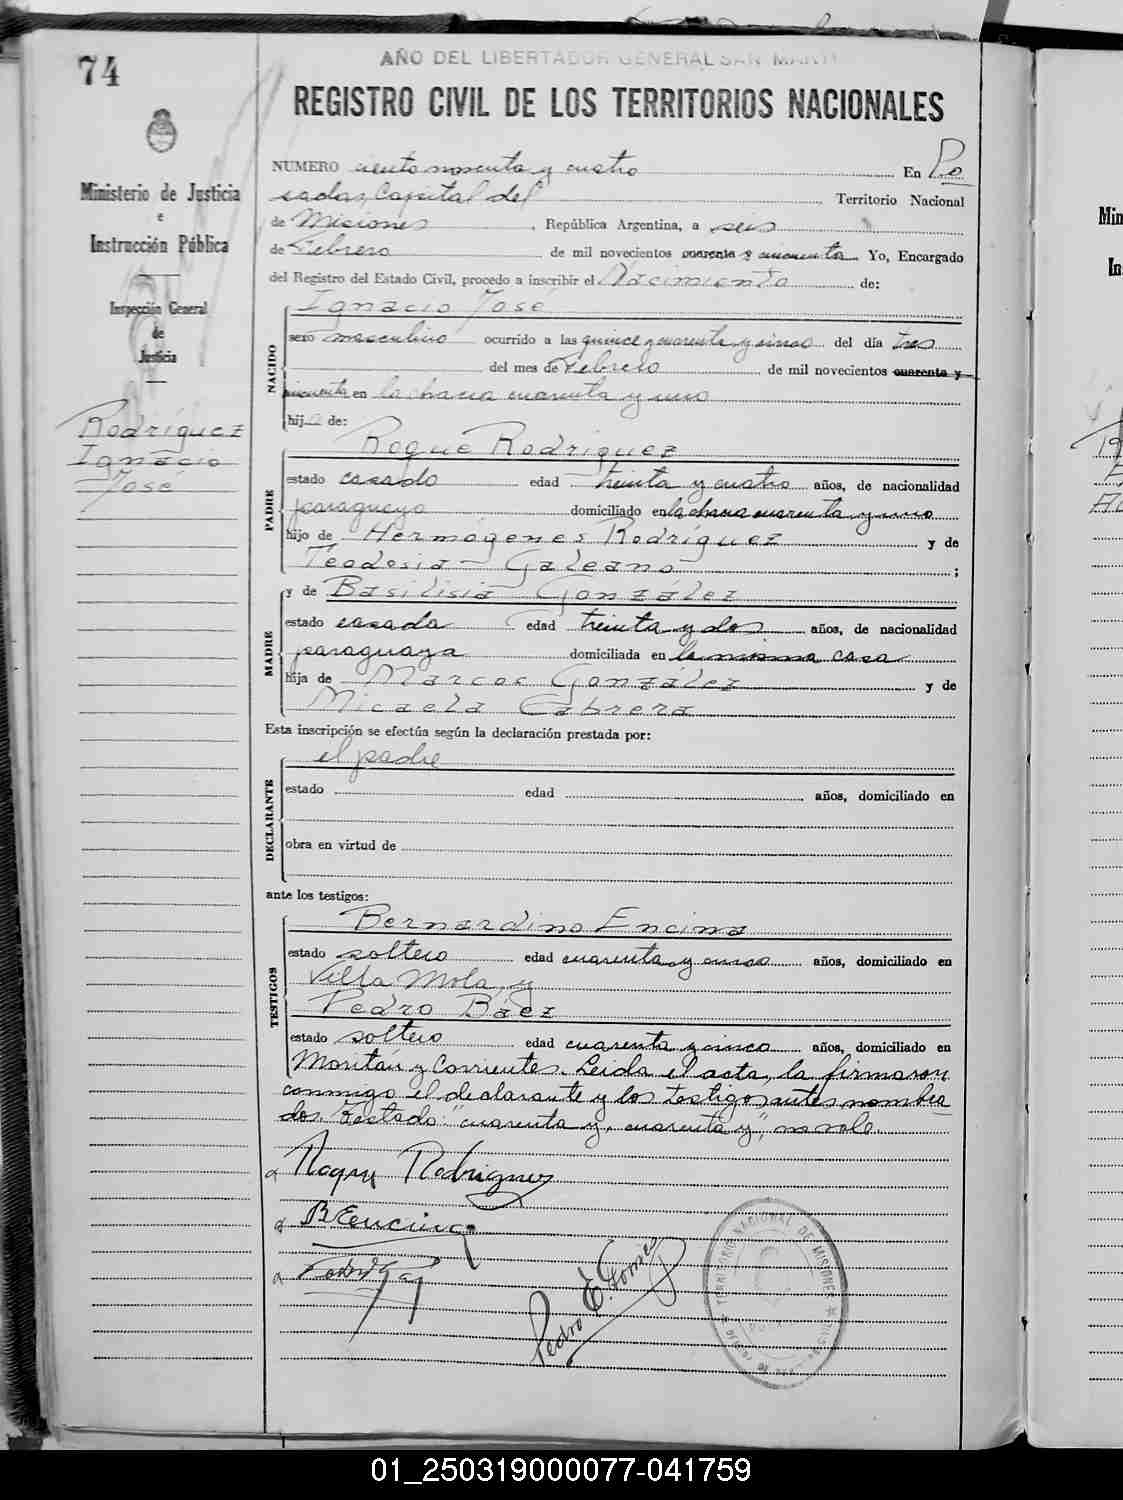 74
AÑO DEL LIBERTADOR GENERAL SAN MARTI
REGISTRO CIVIL DE LOS TERRITORIOS NACIONALES
Ministerio de Justicia
e
Instrucción Pública
Inspección General
de
Justicia
Rodríguez
Ignacio
José
NUMERO ciento noventa y cuatro En Po
sadas, Capital del Territorio Nacional
de Misiones, República Argentina, a seis
de Febrero de mil novecientos cuarenta y cincuenta Yo, Encargado
del Registro del Estado Civil, procedo a inscribir el Nacimiento de:
NACIDO
Ignacio José
sexo masculino ocurrido a las quince y cuarenta y cinco del día tres
del mes de Febrero de mil novecientos cuarenta y
cincuenta en la chacra cuarenta y uno
hijo de:
PADRE
Roque Rodríguez
estado casado edad treinta y cuatro años, de nacionalidad
paraguayo domiciliado en la chacra cuarenta y uno
hijo de Hermógenes Rodríguez y de
Teodosia Galeano;
MADRE
y de Basilisia González
estado casada edad treinta y dos años, de nacionalidad
paraguaya domiciliada en la misma casa
hija de Marcos González y de
Micaela Cabrera
Esta inscripción se efectúa según la declaración prestada por:
DECLARANTE
el padre
estado edad años, domiciliado en
obra en virtud de
ante los testigos:
TESTIGOS
Bernardino Encina
estado soltero edad cuarenta y cinco años, domiciliado en
Villa Mola, y
Pedro Báez
estado soltero edad cuarenta y cinco años, domiciliado en
Moritán y Corrientes. Leída el acta, la firmaron
conmigo el declarante y los testigos antes nombra
dos. Testado: "cuarenta y, cuarenta y", no vale.
Roque Rodriguez
BEncina
Pedro E. Gomez
TERRITORIO NACIONAL DE MISIONES
01_250319000077-041759